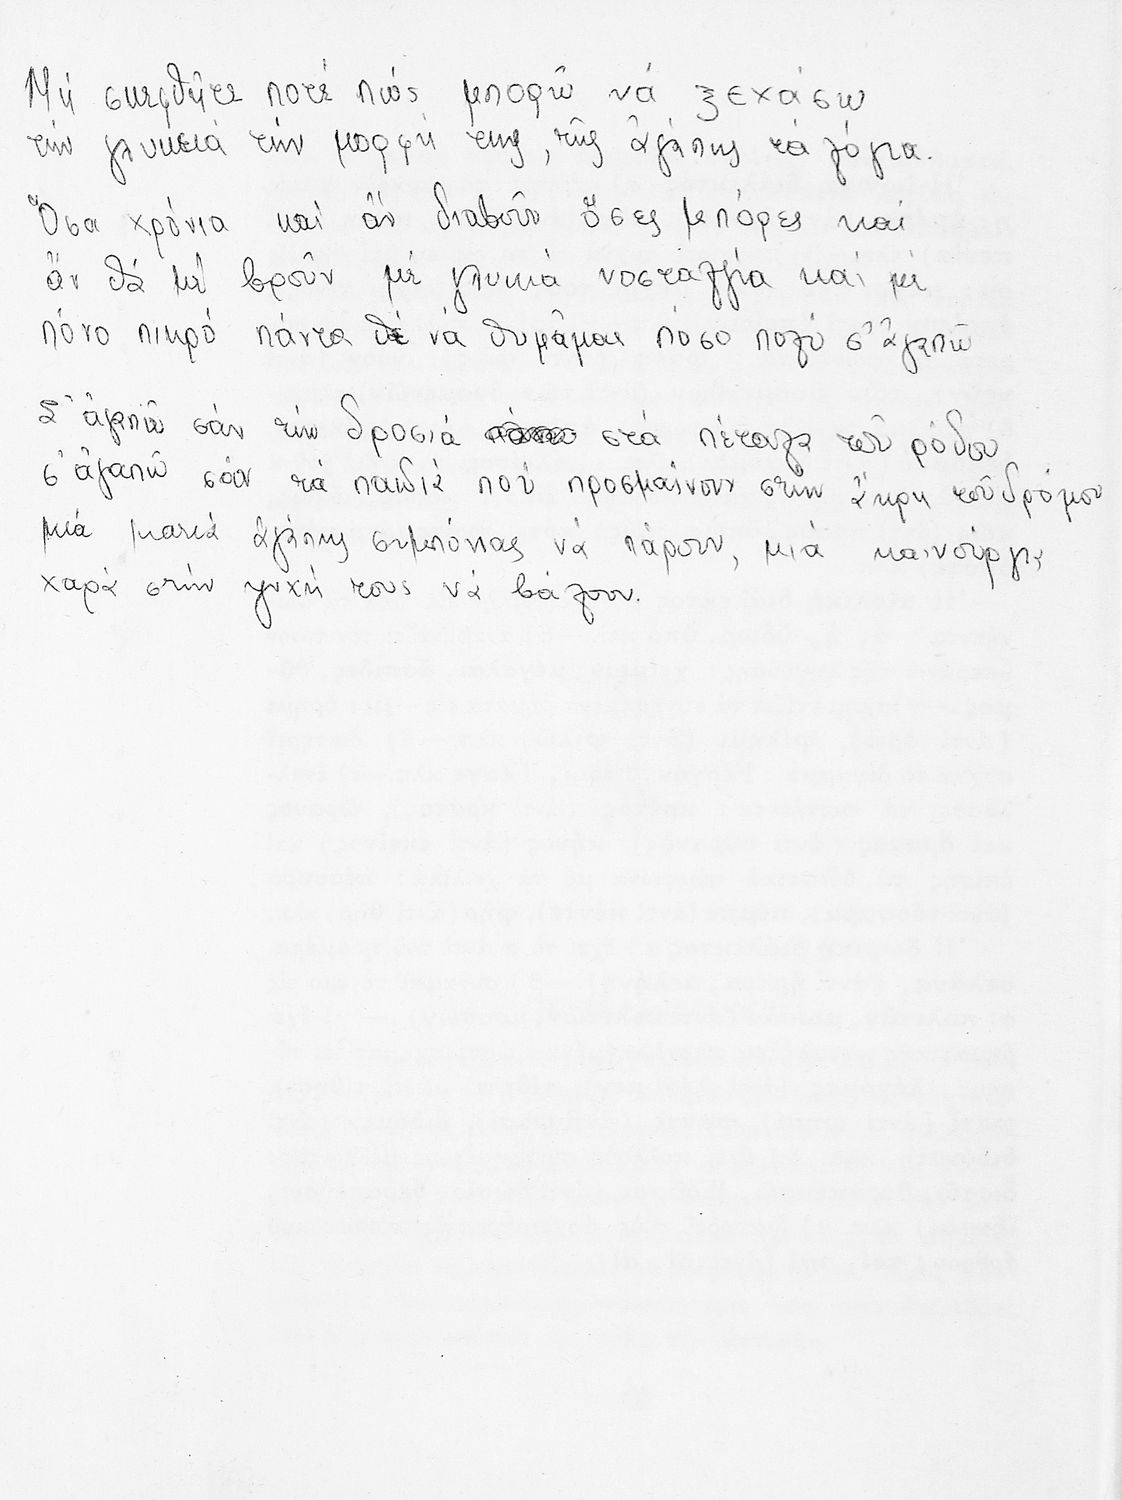 Μή σκεφθῆτε ποτέ πώς μπορῶ νά ξεχάσω
τήν γλυκειά τήν μορφή της, τῆς ἀγάπης τά λόγια.
Ὅσα χρόνια καί ἄν διαβοῦν ὅσες μπόρες καί
ἄν θά μέ βροῦν μέ γλυκιά νοσταλγία καί μέ
πόνο πικρό πάντα θά νά θυμᾶμαι πόσο πολύ σ' ἀγαπῶ
Σ' ἀγαπῶ σάν τήν δροσιά στά πέταλα τοῦ ρόδου
σ' ἀγαπῶ σάν τά παιδιά πού προσμαίνουν στήν ἄκρη τοῦ δρόμου
μιά ματιά ἀγάπης συμπόνιας νά πάρουν, μιά καινούργια
χαρά στήν ψυχή τους νά βάλουν.